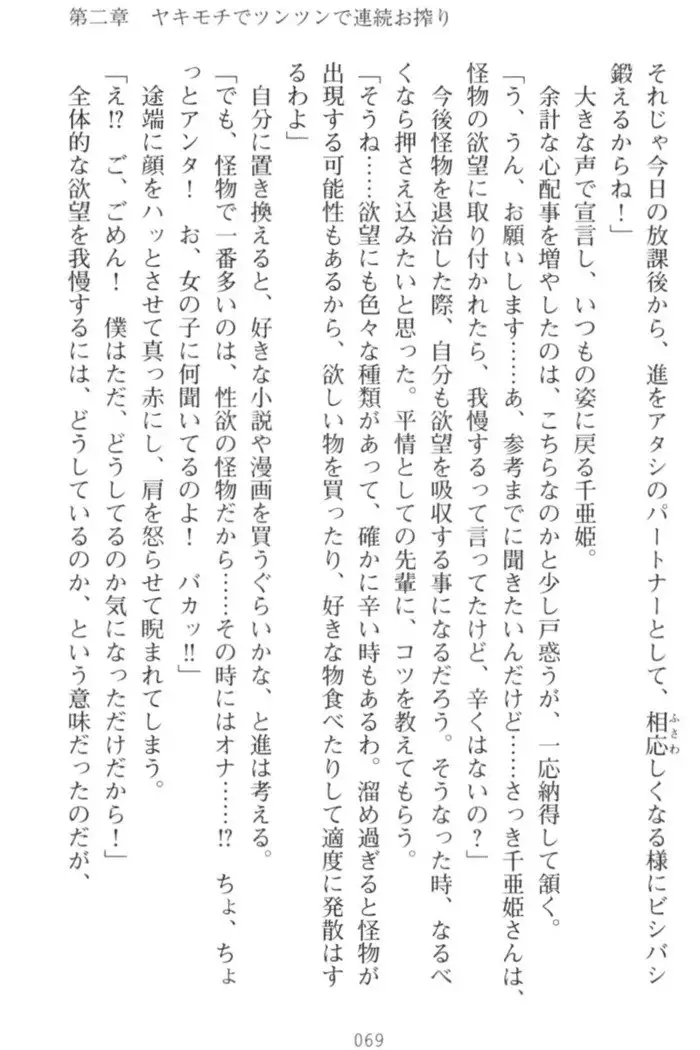 第二章　ヤキモチでツンツンで連続お搾り
それじゃ今日の放課後から、進をアタシのパートナーとして、相応しくなる様にビシバシ
ふさわ
鍛えるからね！」
大きな声で宣言し、いつもの姿に戻る千亜姫。
余計な心配事を増やしたのは、こちらなのかと少し戸惑うが、一応納得して頷く。
「う、うん、お願いします……あ、参考までに聞きたいんだけど……さっき千亜姫さんは、
怪物の欲望に取り付かれたら、我慢するって言ってたけど、辛くはないの？」
今後怪物を退治した際、自分も欲望を吸収する事になるだろう。そうなった時、なるべ
くなら押さえ込みたいと思った。平情としての先輩に、コツを教えてもらう。
「そうね……欲望にも色々な種類があって、確かに辛い時もあるわ。溜め過ぎると怪物が
出現する可能性もあるから、欲しい物を買ったり、好きな物食べたりして適度に発散はす
るわよ」
自分に置き換えると、好きな小説や漫画を買うぐらいかな、と進は考える。
「でも、怪物で一番多いのは、性欲の怪物だから……その時にはオナ……!?　ちょ、ちょ
っとアンタ！　お、女の子に何聞いてるのよ！　バカッ!!」
途端に顔をハッとさせて真っ赤にし、肩を怒らせて睨まれてしまう。
「え!?　ご、ごめん！　僕はただ、どうしてるのか気になっただけだから！」
全体的な欲望を我慢するには、どうしているのか、という意味だったのだが、
069